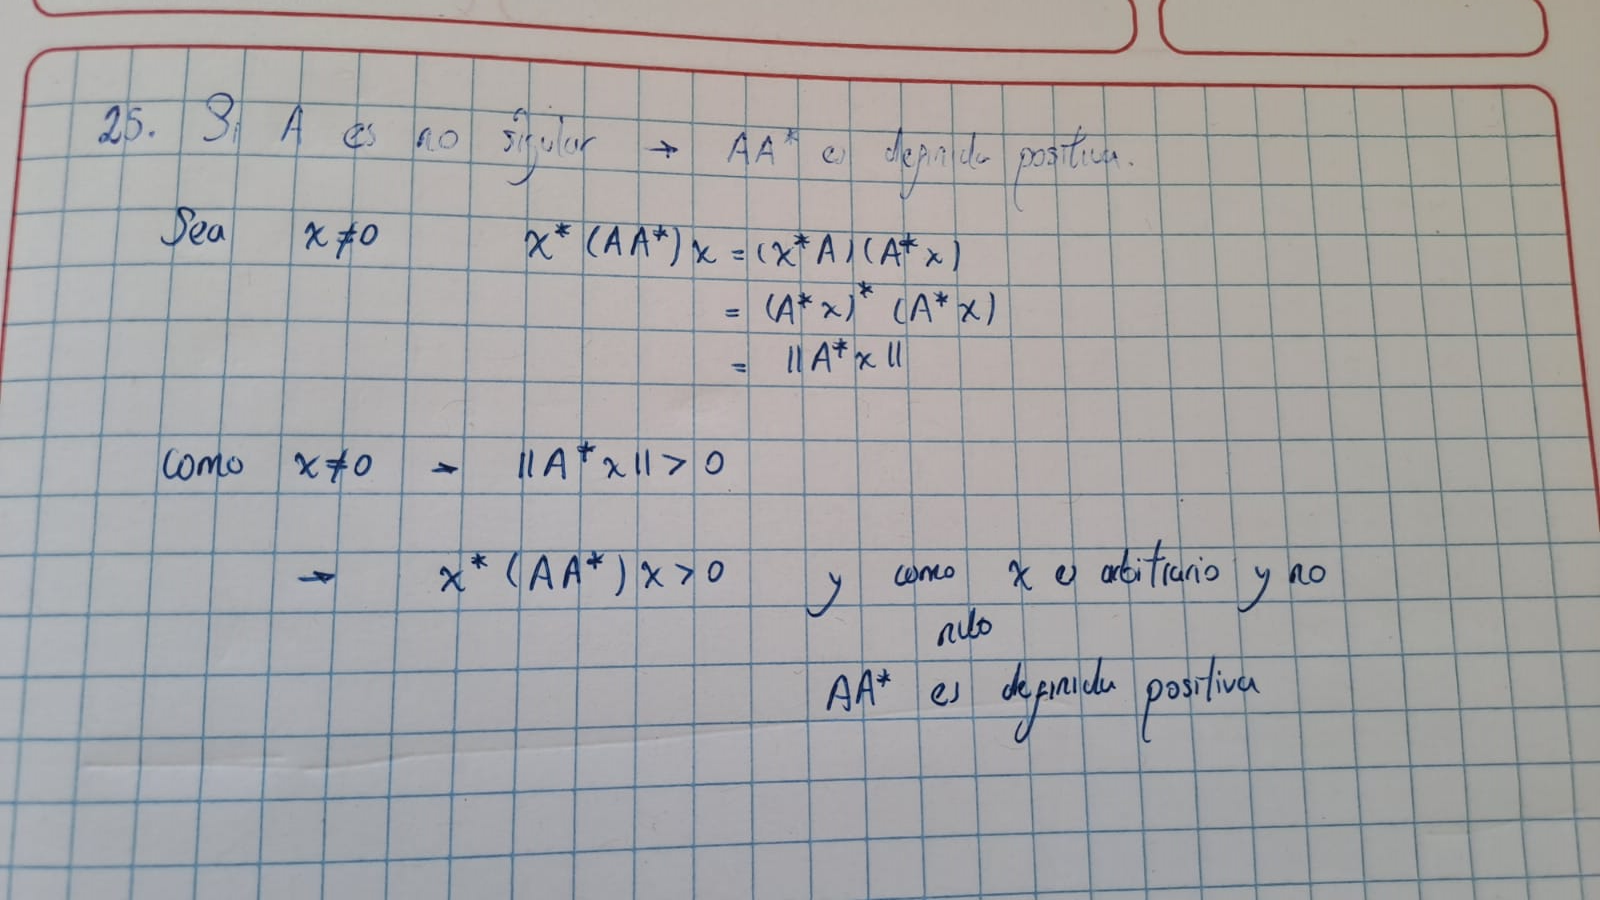 25. Si A es no sigular → AA* es definida positiva.
Sea x≠0 x*(AA*)x = (x*A)(A*x)
= (A*x)* (A*x)
= ||A*x||
como x≠0 → ||A*x|| > 0
→ x*(AA*)x > 0 y como x es arbitrario y no
nulo
AA* es definida positiva